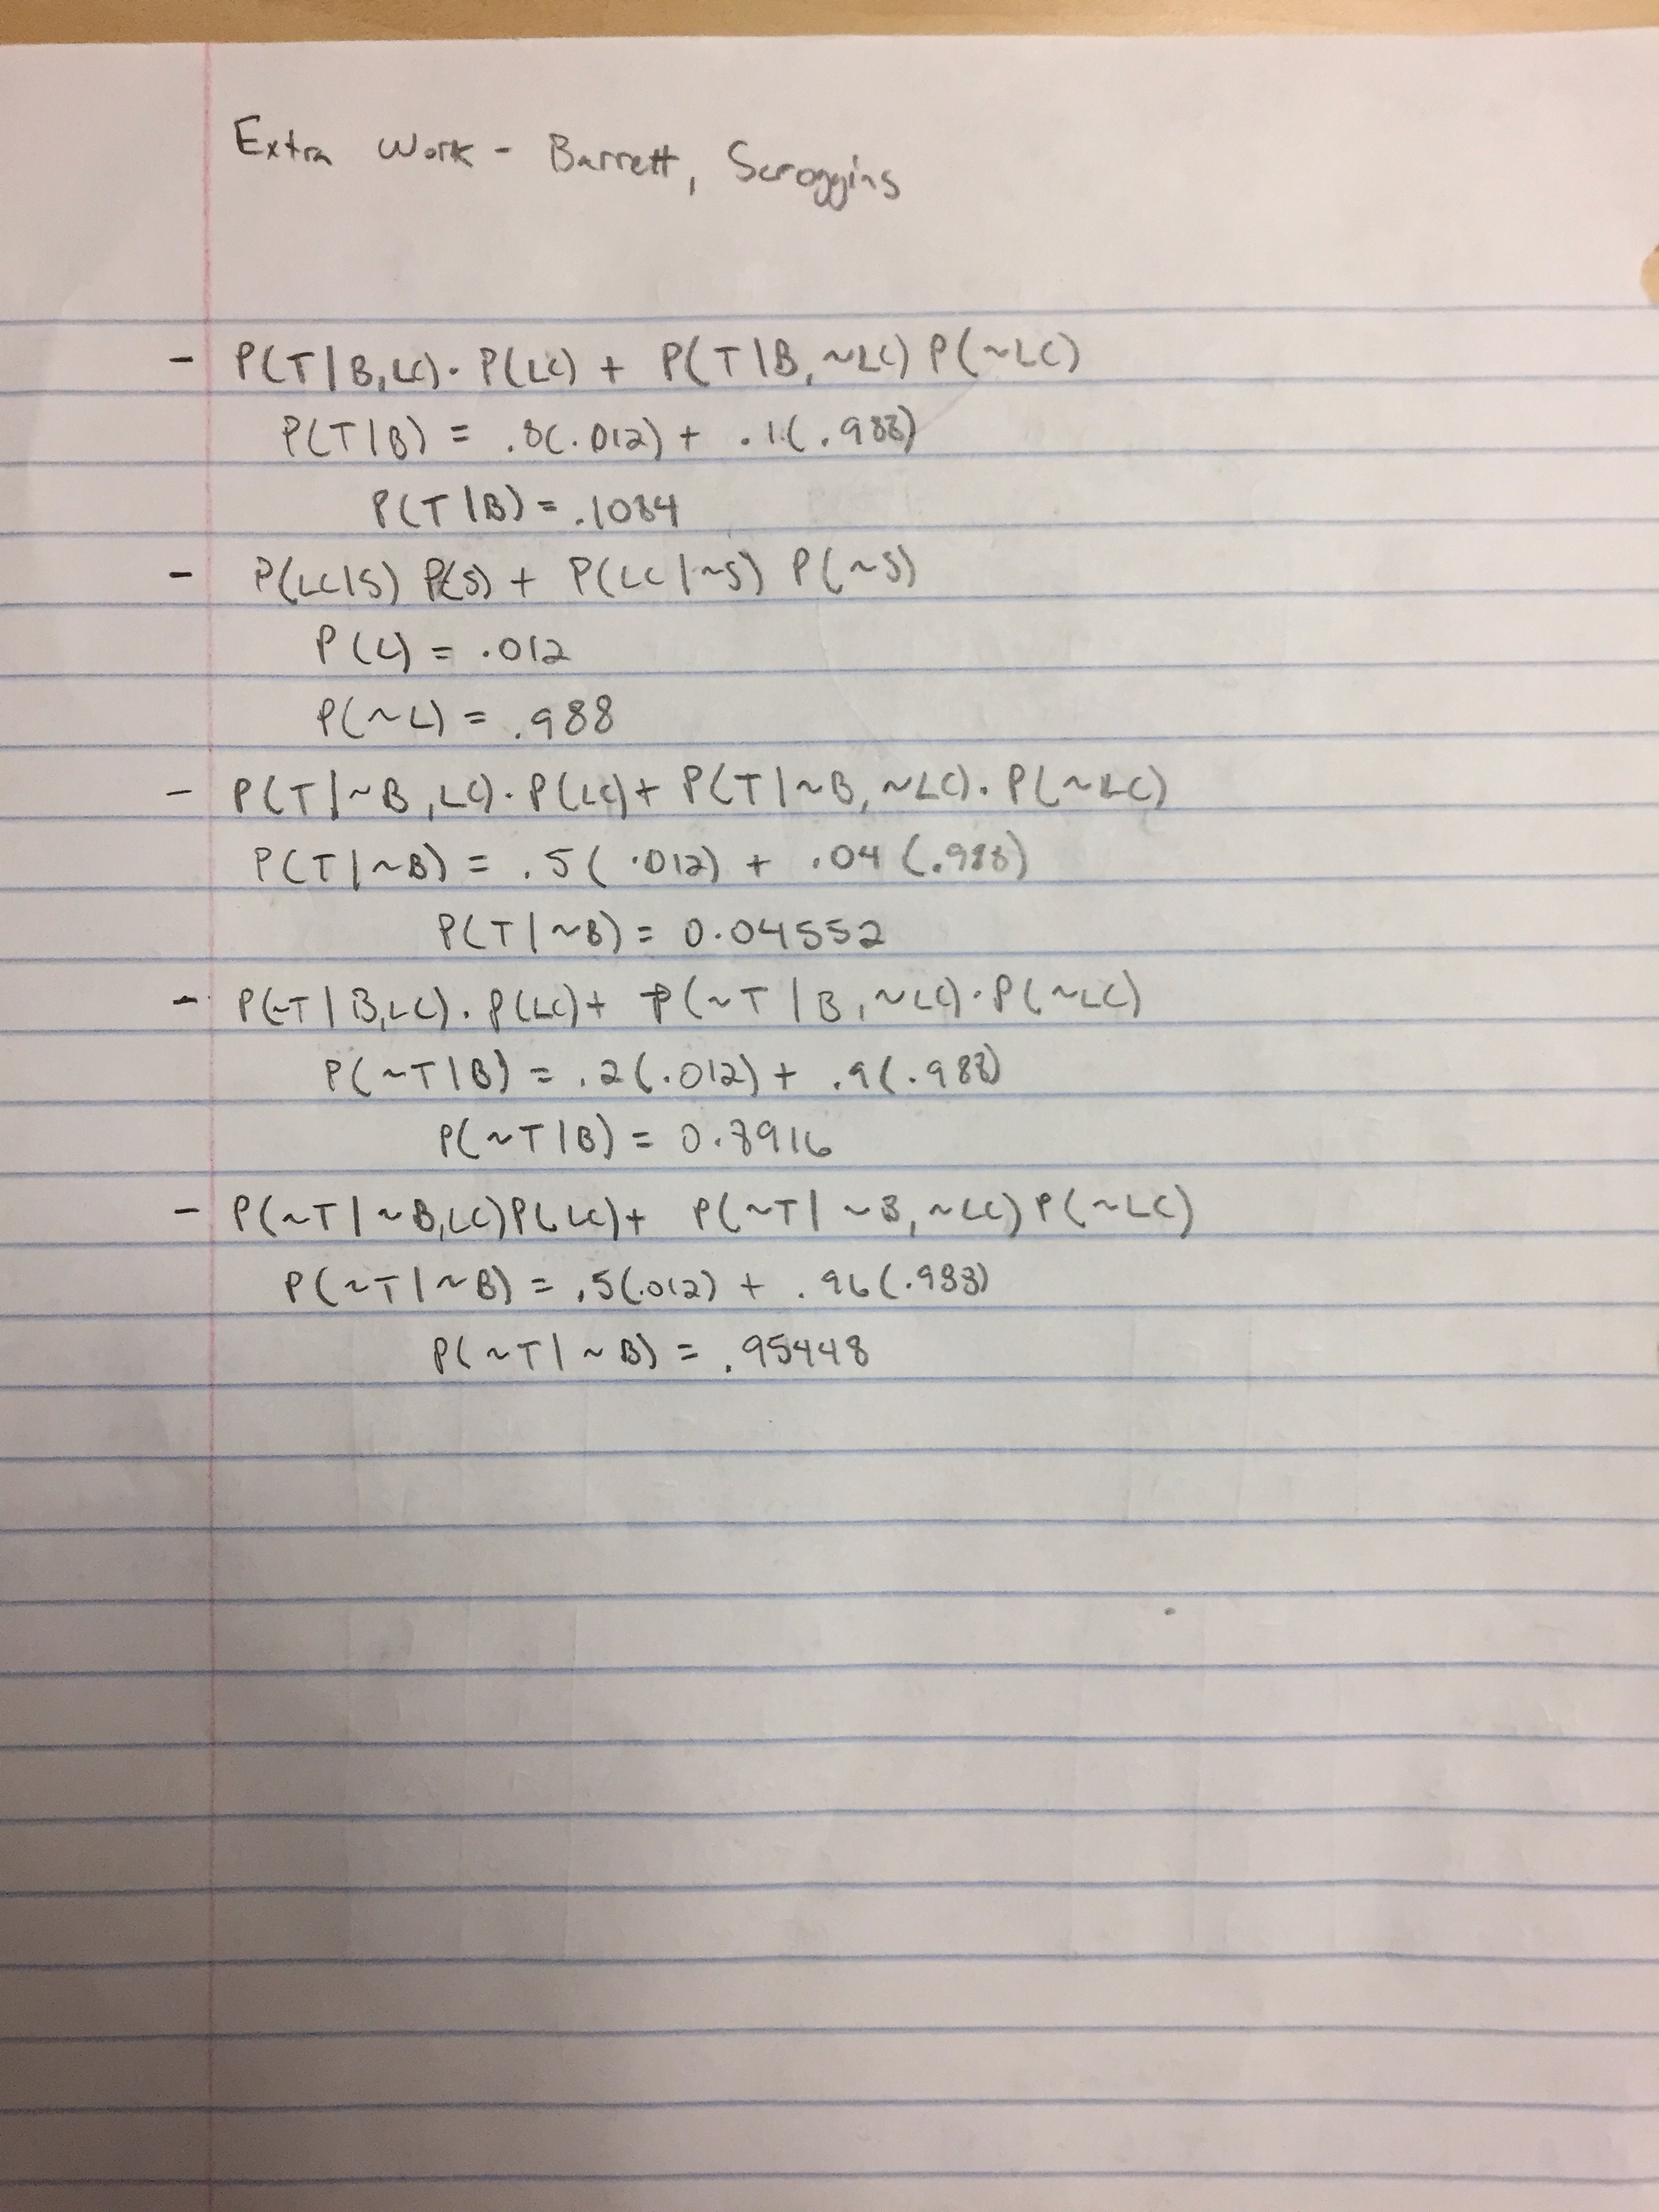 Extra Work - Barrett, Scroggins
- P(T|B,LC)·P(LC) + P(T|B,~LC)P(~LC)
P(T|B) = .8(.012) + .1(.988)
P(T|B) = .1084
- P(LC|S) P(S) + P(LC|~S) P(~S)
P(L) = .012
P(~L) = .988
- P(T|~B,LC)·P(LC) + P(T|~B,~LC)·P(~LC)
P(T|~B) = .5(.012) + .04(.988)
P(T|~B) = 0.04552
- P(~T|B,LC)·P(LC) + P(~T|B,~LC)·P(~LC)
P(~T|B) = .2(.012) + .9(.988)
P(~T|B) = 0.8916
- P(~T|~B,LC)P(LC) + P(~T|~B,~LC)P(~LC)
P(~T|~B) = .5(.012) + .96(.988)
P(~T|~B) = .95448